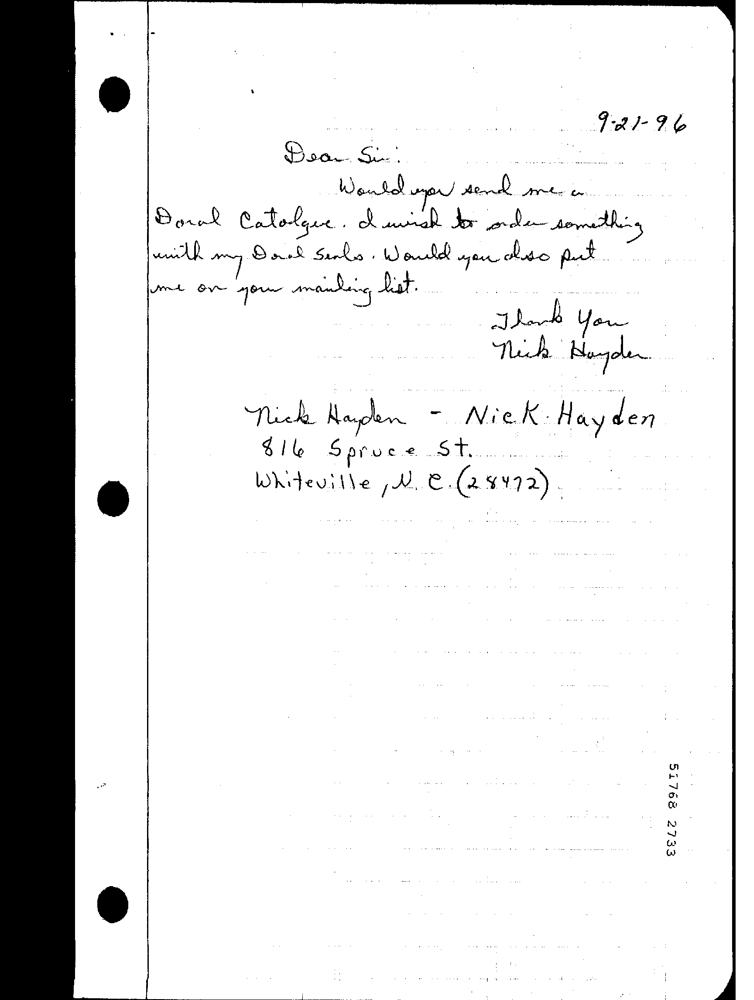 9-21-96
Dear Sir:
Would you send me a
Doral Catolgue. I wish to order something
with my Doral Seals. Would you also put
me on your mailing list.
Thank You
Nick Hayden
Nick Hayden - Nick Hayden
816 Spruce St.
Whiteville, N.C. (28472)
51768 2733